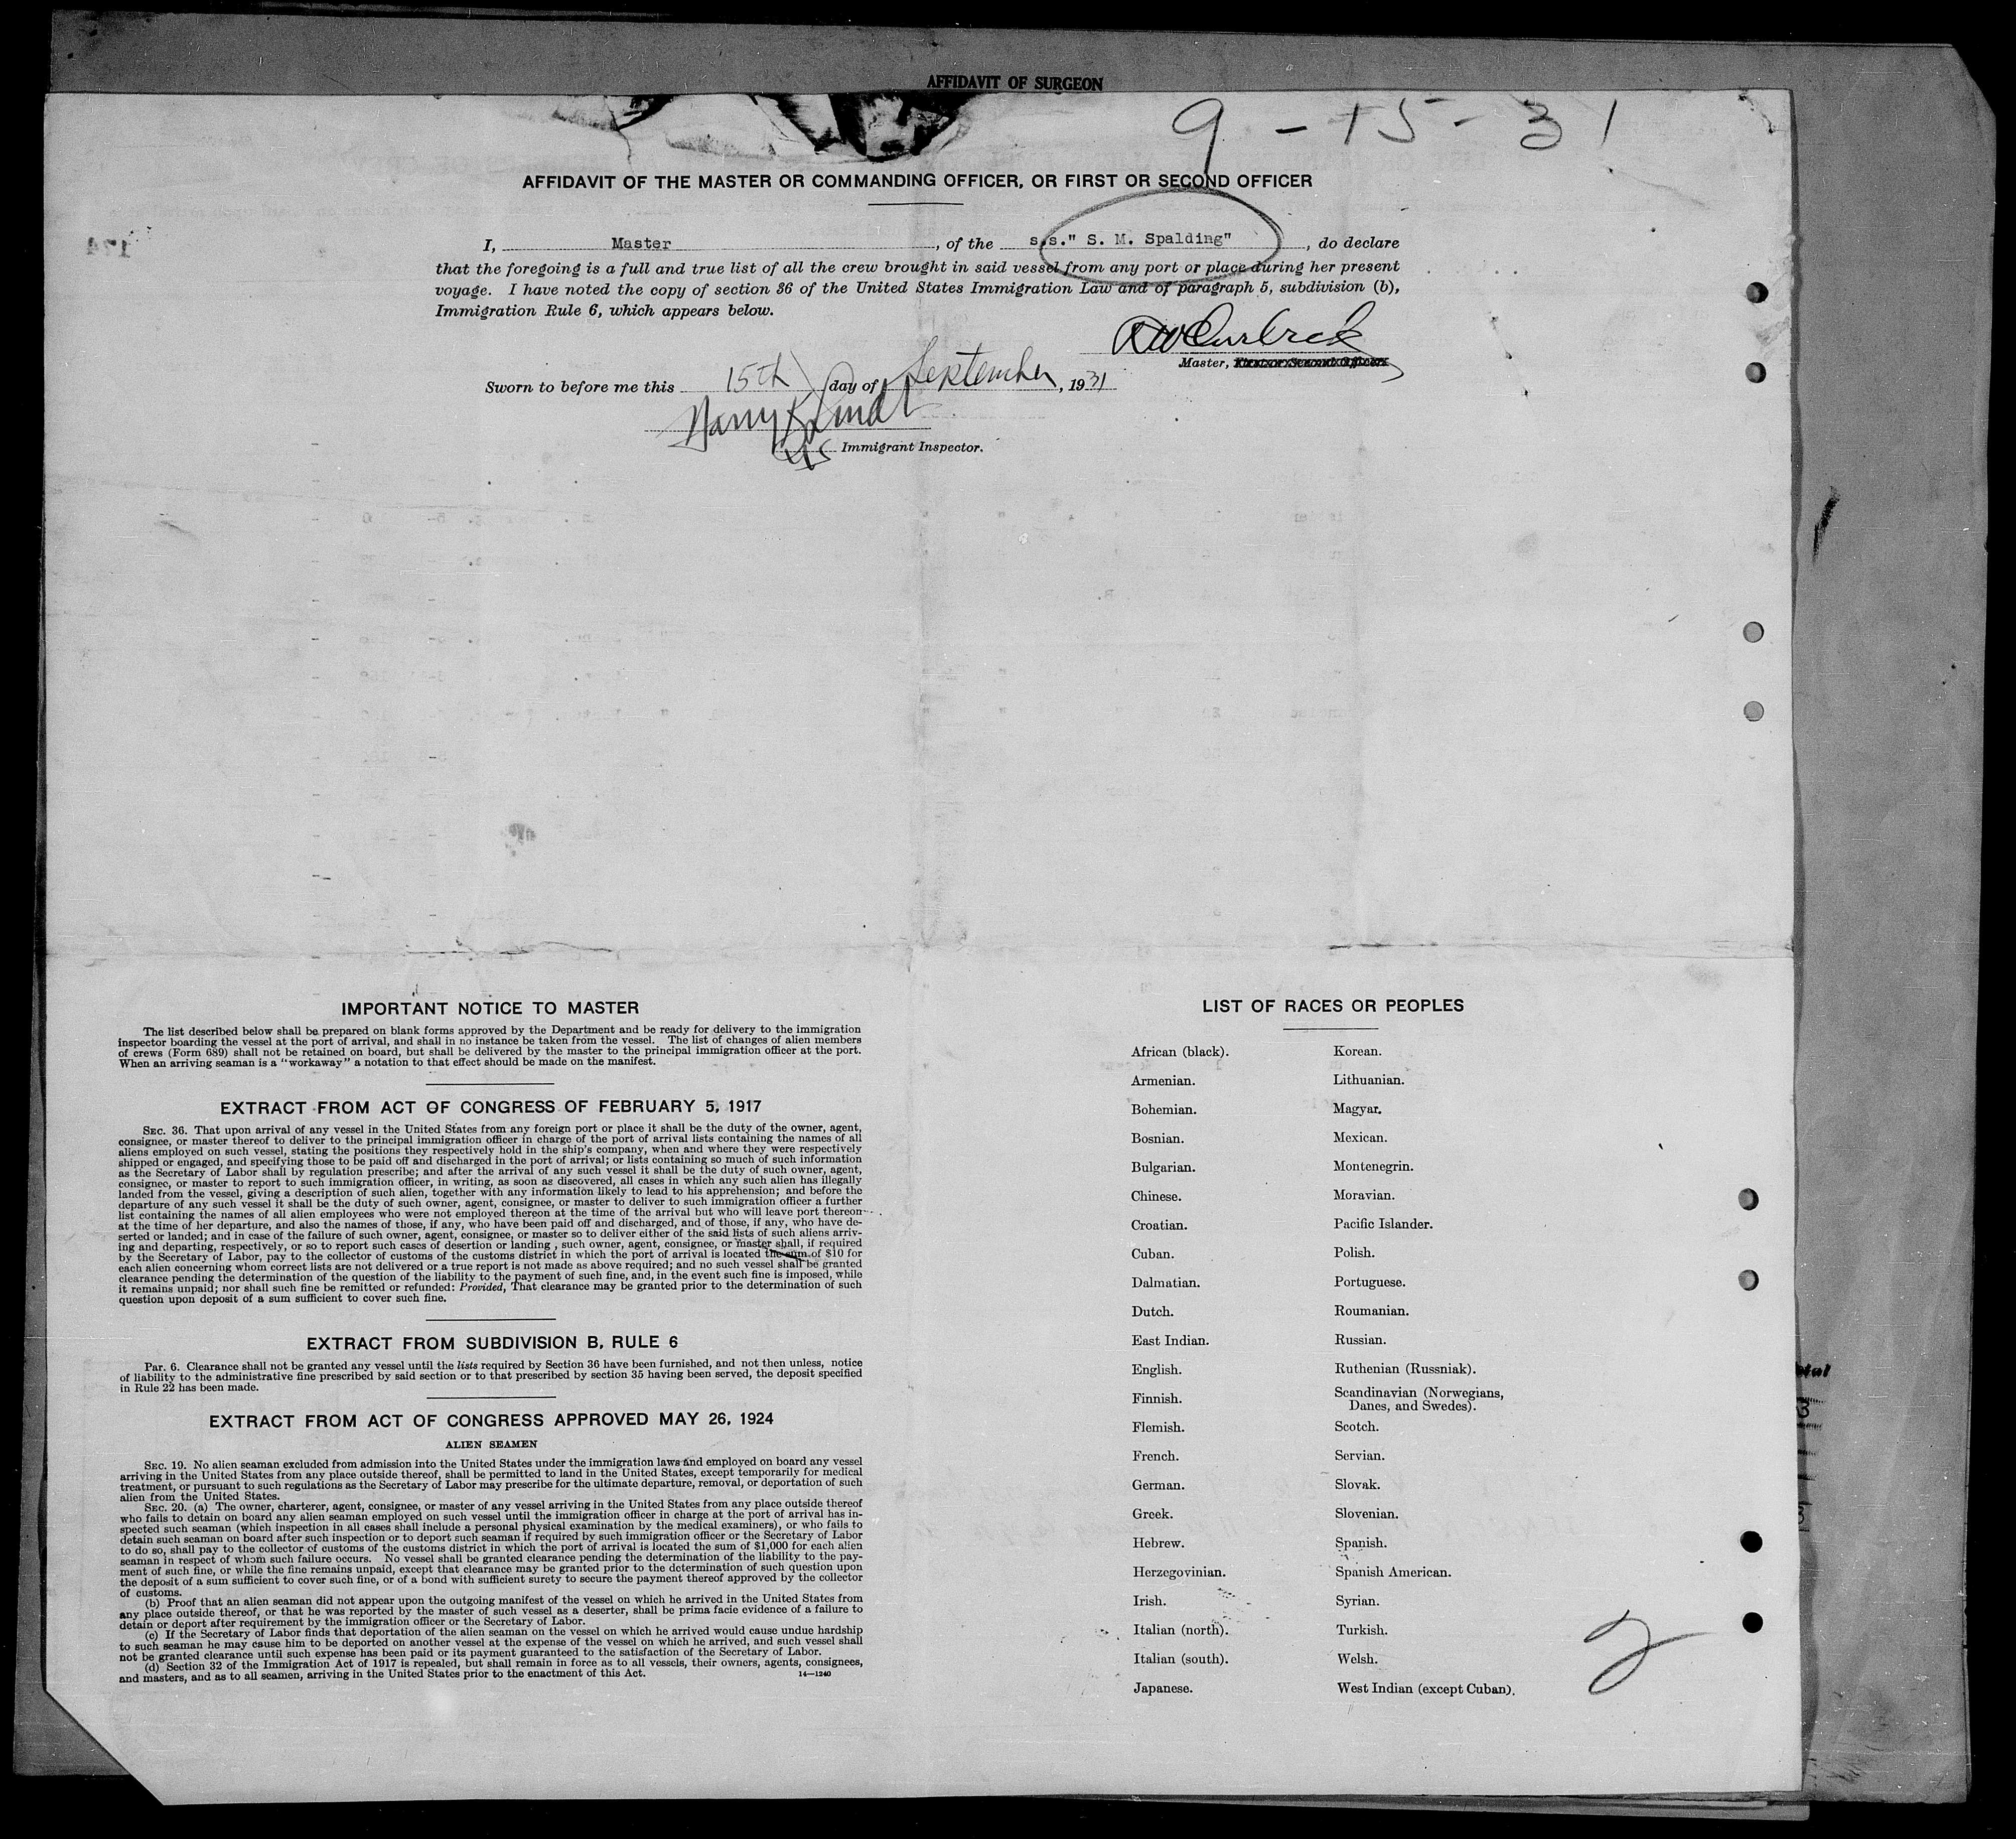 AFFIDAVIT OF SURGEON
9-15-31
AFFIDAVIT OF THE MASTER OR COMMANDING OFFICER, OR FIRST OR SECOND OFFICER
I, Master, of the s.s." S. M. Spalding", do declare
that the foregoing is a full and true list of all the crew brought in said vessel from any port or place during her present
voyage. I have noted the copy of section 36 of the United States Immigration Law and of paragraph 5, subdivision (b),
Immigration Rule 6, which appears below.
Master,
Sworn to before me this 15th day of September, 1931
Harry
Immigrant Inspector.
174
IMPORTANT NOTICE TO MASTER
The list described below shall be prepared on blank forms approved by the Department and be ready for delivery to the immigration
inspector boarding the vessel at the port of arrival, and shall in no instance be taken from the vessel. The list of changes of alien members
of crews (Form 689) shall not be retained on board, but shall be delivered by the master to the principal immigration officer at the port.
When an arriving seaman is a "workaway" a notation to that effect should be made on the manifest.
EXTRACT FROM ACT OF CONGRESS OF FEBRUARY 5, 1917
SEC. 36. That upon arrival of any vessel in the United States from any foreign port or place it shall be the duty of the owner, agent,
consignee, or master thereof to deliver to the principal immigration officer in charge of the port of arrival lists containing the names of all
aliens employed on such vessel, stating the positions they respectively hold in the ship's company, when and where they were respectively
shipped or engaged, and specifying those to be paid off and discharged in the port of arrival; or lists containing so much of such information
as the Secretary of Labor shall by regulation prescribe; and after the arrival of any such vessel it shall be the duty of such owner, agent,
consignee, or master to report to such immigration officer, in writing, as soon as discovered, all cases in which any such alien has illegally
landed from the vessel, giving a description of such alien, together with any information likely to lead to his apprehension; and before the
departure of any such vessel it shall be the duty of such owner, agent, consignee, or master to deliver to such immigration officer a further
list containing the names of all alien employees who were not employed thereon at the time of the arrival but who will leave port thereon
at the time of her departure, and also the names of those, if any, who have been paid off and discharged, and of those, if any, who have de-
serted or landed; and in case of the failure of such owner, agent, consignee, or master so to deliver either of the said lists of such aliens arriv-
ing and departing, respectively, or so to report such cases of desertion or landing , such owner, agent, consignee, or master shall, if required
by the Secretary of Labor, pay to the collector of customs of the customs district in which the port of arrival is located the sum of $10 for
each alien concerning whom correct lists are not delivered or a true report is not made as above required; and no such vessel shall be granted
clearance pending the determination of the question of the liability to the payment of such fine, and, in the event such fine is imposed, while
it remains unpaid; nor shall such fine be remitted or refunded: Provided, That clearance may be granted prior to the determination of such
question upon deposit of a sum sufficient to cover such fine.
EXTRACT FROM SUBDIVISION B, RULE 6
Par. 6. Clearance shall not be granted any vessel until the lists required by Section 36 have been furnished, and not then unless, notice
of liability to the administrative fine prescribed by said section or to that prescribed by section 35 having been served, the deposit specified
in Rule 22 has been made.
EXTRACT FROM ACT OF CONGRESS APPROVED MAY 26, 1924
ALIEN SEAMEN
SEC. 19. No alien seaman excluded from admission into the United States under the immigration laws and employed on board any vessel
arriving in the United States from any place outside thereof, shall be permitted to land in the United States, except temporarily for medical
treatment, or pursuant to such regulations as the Secretary of Labor may prescribe for the ultimate departure, removal, or deportation of such
alien from the United States.
SEC. 20. (a) The owner, charterer, agent, consignee, or master of any vessel arriving in the United States from any place outside thereof
who fails to detain on board any alien seaman employed on such vessel until the immigration officer in charge at the port of arrival has in-
spected such seaman (which inspection in all cases shall include a personal physical examination by the medical examiners), or who fails to
detain such seaman on board after such inspection or to deport such seaman if required by such immigration officer or the Secretary of Labor
to do so, shall pay to the collector of customs of the customs district in which the port of arrival is located the sum of $1,000 for each alien
seaman in respect of whom such failure occurs. No vessel shall be granted clearance pending the determination of the liability to the pay-
ment of such fine, or while the fine remains unpaid, except that clearance may be granted prior to the determination of such question upon
the deposit of a sum sufficient to cover such fine, or of a bond with sufficient surety to secure the payment thereof approved by the collector
of customs.
(b) Proof that an alien seaman did not appear upon the outgoing manifest of the vessel on which he arrived in the United States from
any place outside thereof, or that he was reported by the master of such vessel as a deserter, shall be prima facie evidence of a failure to
detain or deport after requirement by the immigration officer or the Secretary of Labor.
(c) If the Secretary of Labor finds that deportation of the alien seaman on the vessel on which he arrived would cause undue hardship
to such seaman he may cause him to be deported on another vessel at the expense of the vessel on which he arrived, and such vessel shall
not be granted clearance until such expense has been paid or its payment guaranteed to the satisfaction of the Secretary of Labor.
(d) Section 32 of the Immigration Act of 1917 is repealed, but shall remain in force as to all vessels, their owners, agents, consignees,
and masters, and as to all seamen, arriving in the United States prior to the enactment of this Act.
14—1240
LIST OF RACES OR PEOPLES
African (black).
Armenian.
Bohemian.
Bosnian.
Bulgarian.
Chinese.
Croatian.
Cuban.
Dalmatian.
Dutch.
East Indian.
English.
Finnish.
Flemish.
French.
German.
Greek.
Hebrew.
Herzegovinian.
Irish.
Italian (north).
Italian (south).
Japanese.
Korean.
Lithuanian.
Magyar.
Mexican.
Montenegrin.
Moravian.
Pacific Islander.
Polish.
Portuguese.
Roumanian.
Russian.
Ruthenian (Russniak).
Scandinavian (Norwegians,
Danes, and Swedes).
Scotch.
Servian.
Slovak.
Slovenian.
Spanish.
Spanish American.
Syrian.
Turkish.
Welsh.
West Indian (except Cuban).
2